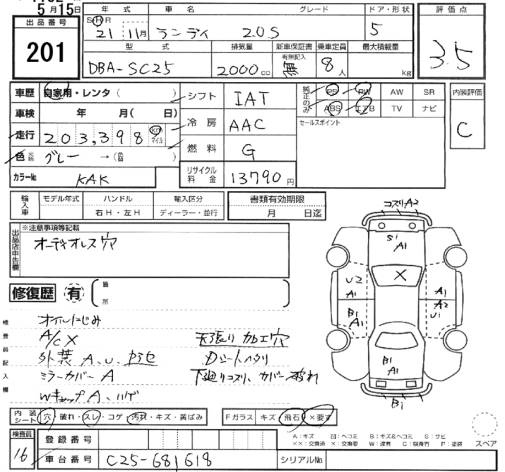 5月15日
年式 車名 グレード ドア・形状 評価点
出品番号
201
S H R
21 11月 ランディ 2.0S 5
3.5
型式 排気量 新車保証書 乗車定員 最大積載量
DBA-SC25 2000cc 有無記入 無 8人 kg
車歴 自家用・レンタ( )
シフト IAT
純正のみ PS PW AW SR
ABS エアB TV ナビ
内装評価
C
車検 年 月( 日)
冷房 AAC
セールスポイント
走行 203,398 km マイル
燃料 G
色 グレー →( )
カラーNo. KAK
リサイクル料金 13790円
輸入車 モデル年式 ハンドル 輸入区分 書類有効期限
右H・左H ディーラー・並行 月 日迄
出品店申告欄
※注意事項等記載
オーディオレス穴
修復歴 有 箇所
コスリA2
S1
A1
X
U2
A1
A1
A1
U1
B1
A1
A1
B1
A1
B1
検査員記入欄
オイルにじみ
A/C X
外装 A、U、
ミラーカバー A
天張り加工穴
Dシート
下廻りコスリ、カバー
内装シート 穴・破れ・スレ・コゲ 汚れ・キズ・黄ばみ
Fガラス キズ 飛石 ×要す
スペア
検査員
16
登録番号
車台番号 C25-681618
シリアルNo.